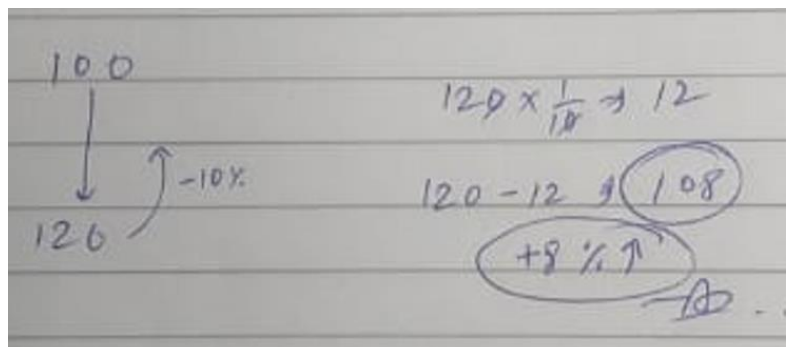 100
-10%
120
120 × 1/10 ⇒ 12
120 - 12 ⇒ 108
+8 % ↑